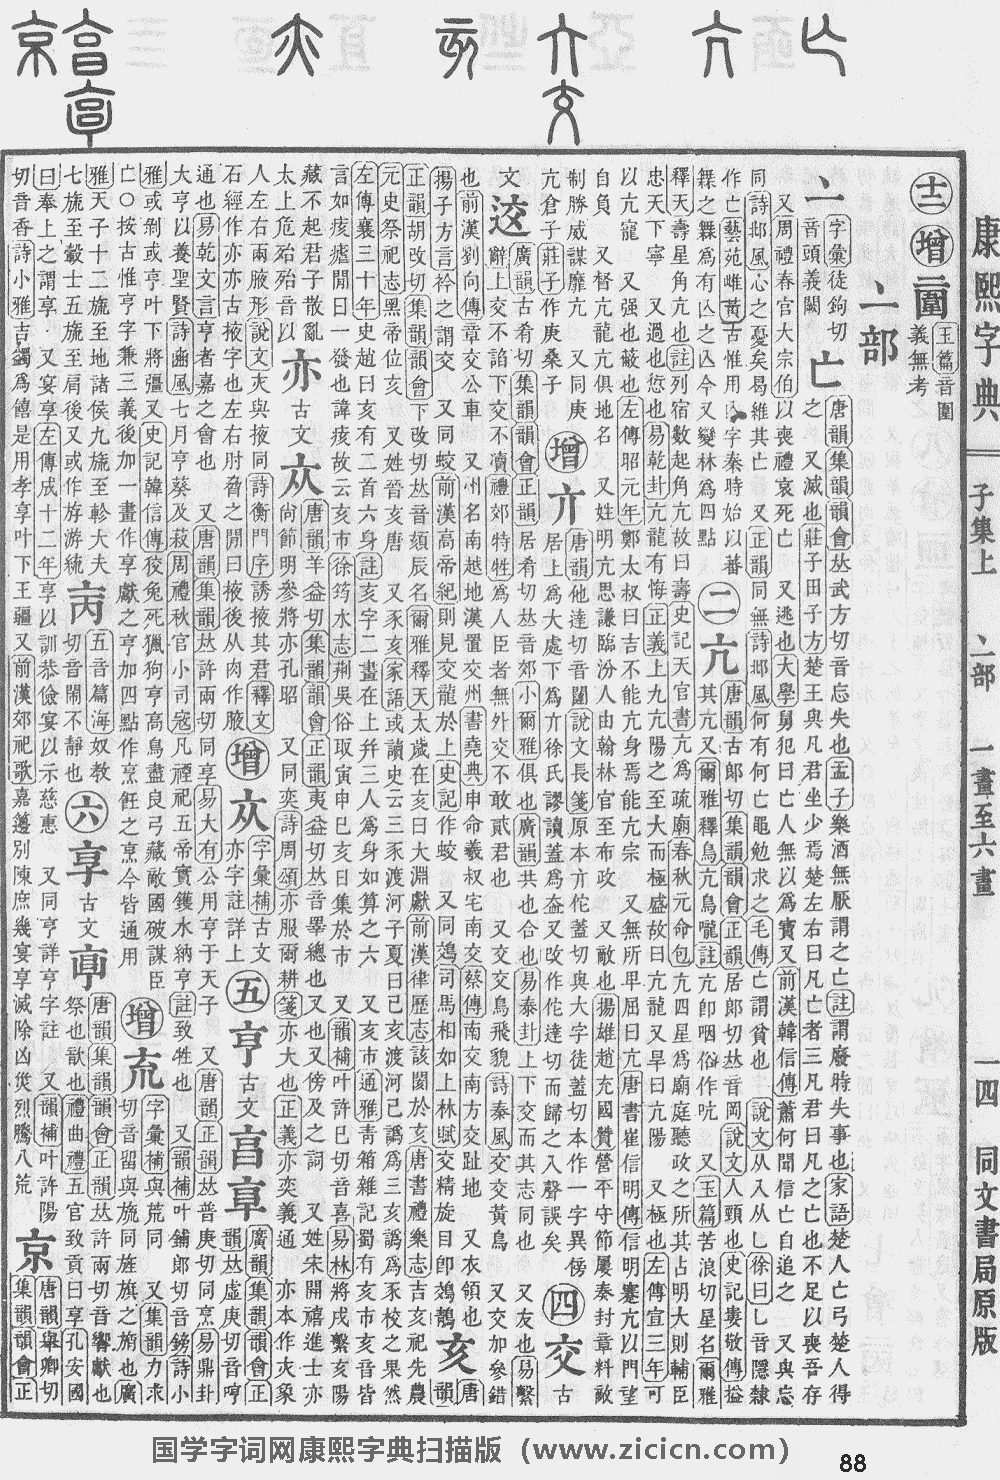 康熙字典 子集上 亠部 一畫至六畫 一四 同文書局原版
十二 增 玉篇音圍
義無考
亠部
亠 字彙徒鉤切
音頭義闕
亡 唐韻集韻韻會𠀤武方切音忘失也孟子樂酒無厭謂之亡註謂廢時失事也家語楚人亡弓楚人得
之 又滅也莊子田子方楚王與凡君坐少焉楚左右曰凡亡者三凡君曰凡之亡也不足以喪吾存
又周禮春官大宗伯以喪禮哀死亡 又逃也大學舅犯曰亡人無以爲寶又前漢韓信傳蕭何聞信亡自追之 又與忘
同詩邶風心之憂矣曷維其亡 又正韻同無詩邶風何有何亡黽勉求之毛傳亡謂貧也 說文从入从乚徐曰乚音隱隸
作亡藝苑雌黃古惟用兦字秦時始以蕃
橆之橆爲有兦之兦今又變林爲四點
二 亢 唐韻古郎切集韻韻會正韻居郎切𠀤音岡說文人頸也史記婁敬傳搤
其亢又爾雅釋鳥亢鳥嚨註亢卽咽俗作吭 又玉篇苦浪切星名爾雅
釋天壽星角亢也註列宿數起角亢故曰壽史記天官書亢爲疏廟春秋元命包亢四星爲廟庭聽政之所其占明大則輔臣
忠天下寧 又過也愆也易乾卦亢龍有悔正義上九亢陽之至大而極盛故曰亢龍又旱曰亢陽 又極也左傳宣三年可
以亢寵 又强也蔽也左傳昭元年鄭大叔曰吉不能亢身焉能亢宗 又無所卑屈曰亢唐書崔信明傳信明蹇亢以門望
自負 又督亢龍亢俱地名 又姓明亢思謙臨汾人由翰林官至布政 又敵也揚雄趙充國贊營平守節屢奏封章料敵
制勝威謀靡亢 又同庚
亢倉子莊子作庚桑子
增 亣 唐韻他達切音闥說文長箋原本亣佗蓋切與大字徒蓋切本作一字異㑹
居上爲大處下爲亣徐氏謬讀蓋爲盇又改作佗達切而歸之入聲誤矣
四 交 古
文 廣韻古肴切集韻韻會正韻居肴切𠀤音郊小爾雅俱也廣韻共也合也易泰卦上下交而其志同也 又友也易繫
辭上交不諂下交不瀆禮郊特牲爲人臣者無外交不敢貳君也 又交交鳥飛貌詩秦風交交黃鳥 又交加參錯
也前漢劉向傳章交公車 又州名南越地漢置交州書堯典申命羲叔宅南交蔡傳南交南方交趾地 又衣領也
揚子方言衿之謂交 又同蛟前漢高帝紀則見交龍於上史記作蛟 又同鵁司馬相如上林賦交精旋目卽鵁鶄
亥 唐
韻
正韻胡改切集韻韻會下改切𠀤音頦辰名爾雅釋天太歲在亥曰大淵獻前漢律歷志該閡於亥唐書禮樂志吉亥祀先農
元史祭祀志黑帝位亥 又姓晉亥唐 又豕亥家語或讀史云三豕渡河子夏曰己亥渡河己譌爲三亥譌爲豕校之果然
左傳襄三十年史趙曰亥有二首六身註亥字二畫在上幷三人爲身如算之六 又亥市通雅靑箱雜記蜀有亥市亥音皆
言如痎瘧閒日一發也諱痎故云亥市徐筠水志荆吳俗取寅申巳亥日集於市 又韻補叶許已切音喜易林將戌繫亥陽
藏不起君子散亂
太上危殆殆音以
亦 古文 唐韻羊益切集韻韻會正韻夷益切𠀤音睪總也又也又傍及之詞 又姓宋開禧進士亦
尙節明參將亦孔昭 又同奕詩周頌亦服爾耕箋亦大也正義亦奕義通 亦本作夾象
人左右兩腋形說文 與掖同詩衡門序誘掖其君釋文
石經作亦亦古掖字也左右肘脅之閒曰掖後从肉作腋
增 字彙補古文
亦字註詳上
五 亨 古文亯 廣韻集韻韻會正
韻𠀤虛庚切音哼
通也易乾文言亨者嘉之會也 又唐韻集韻𠀤許兩切同享易大有公用亨于天子 又唐韻正韻𠀤普庚切同烹易鼎卦
大亨以養聖賢詩豳風七月亨葵及菽周禮秋官小司寇凡禋祀五帝實鑊水納亨註致牲也 又韻補叶鋪郎切音鎊詩小
雅或剝或亨叶下將彊又史記韓信傳狡兔死獵狗亨高鳥盡良弓藏敵國破謀臣
亡○按古惟亨字兼三義後加一畫作享獻之享加四點作烹飪之烹今皆通用
增 㐬 字彙補與荒同 又集韻力求
切音留與旒同旌旗之旒也廣
雅天子十二旒至地諸侯九旒至軫大夫
七旒至轂士五旒至肩後又或作斿游統
五音篇海奴敎
切音鬧不靜也
六 享 古文 唐韻集韻韻會正韻𠀤許兩切音響獻也
祭也歆也禮曲禮五官致貢曰享孔安國
曰奉上之謂享 又宴享左傳成十二年享以訓恭儉宴以示慈惠 又同亨詳亨字註 又韻補叶許陽
切音香詩小雅吉蠲爲饎是用孝享叶下王疆又前漢郊祀歌嘉籩列陳庶幾宴享滅除凶災烈騰八荒
京 唐韻舉卿切
集韻韻會正
国学字词网康熙字典扫描版（www.zicicn.com）
88